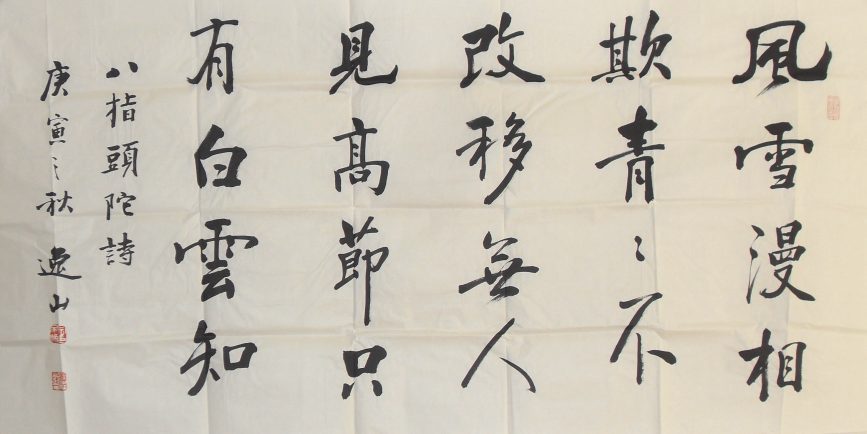 風雪漫相
欺青〻不
改移無人
見高節只
有白雲知
八指頭陀詩
庚寅之秋 逸山